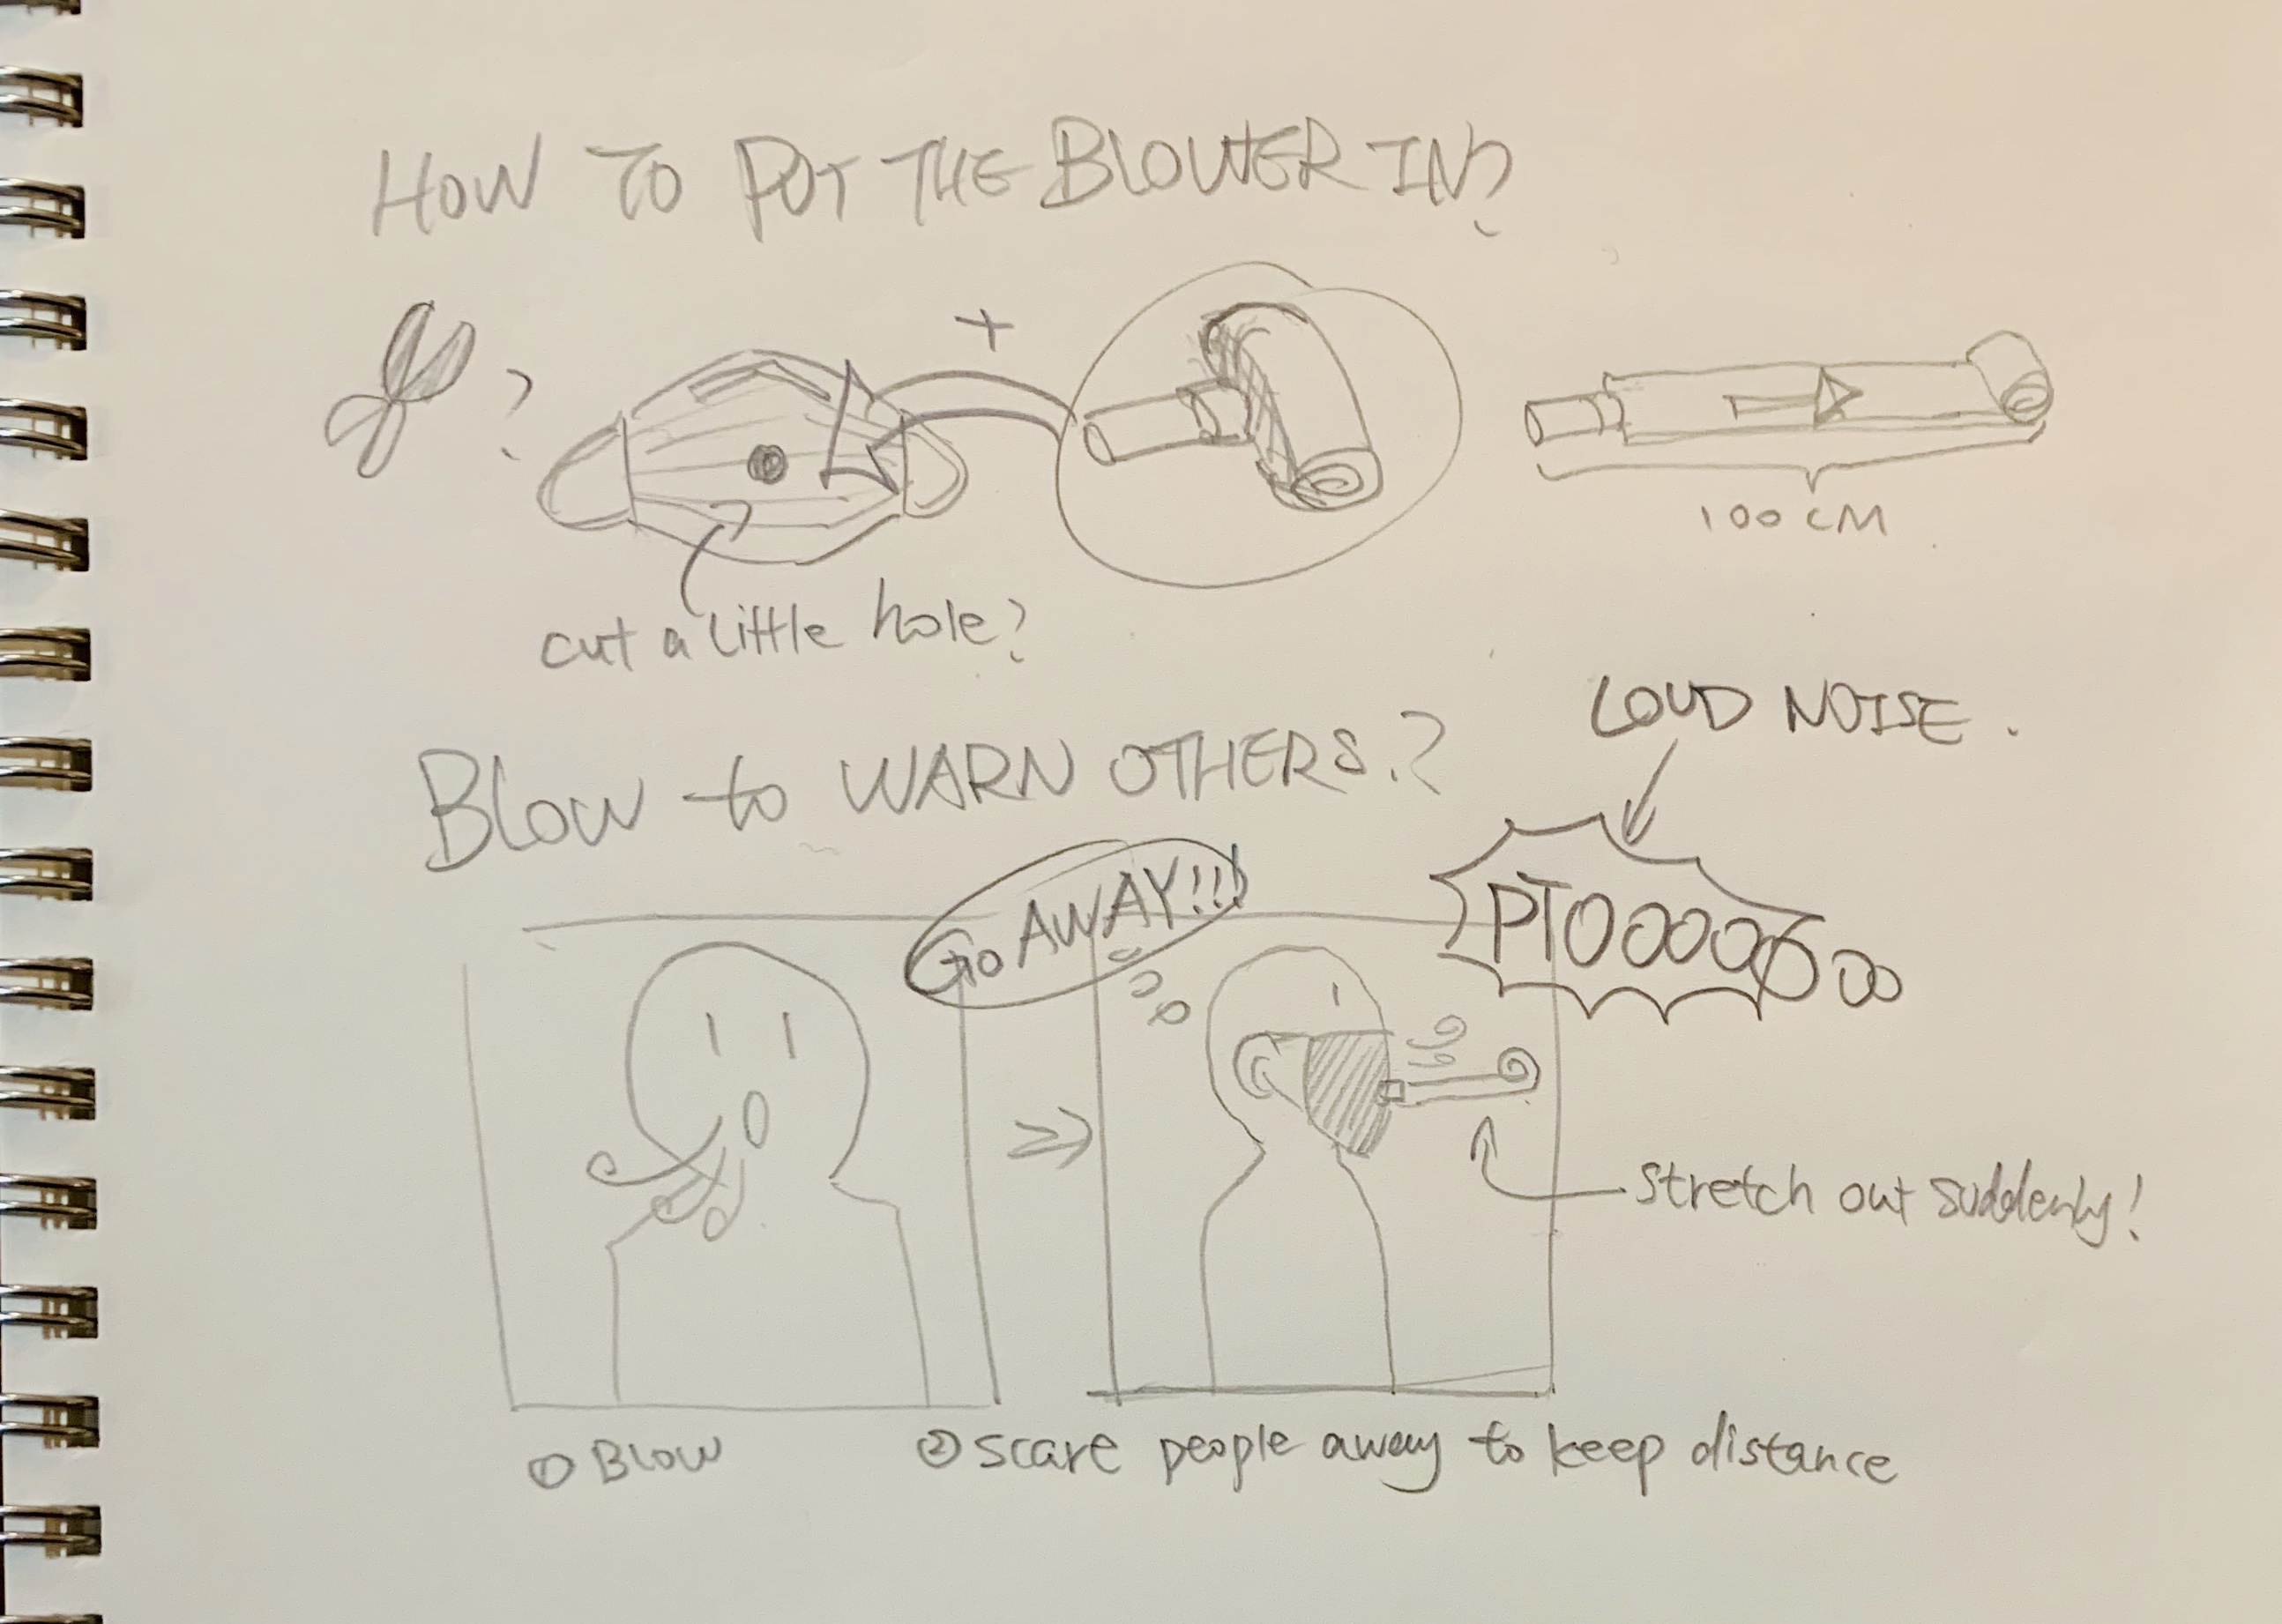 HOW TO PUT THE BLOWER IN?
+
?
100 CM
cut a little hole?
LOUD NOISE.
BLOW to WARN OTHERS.?
GO AWAY!!!
PTOOOOOOO
stretch out suddenly!
① BLOW
② scare people away to keep distance